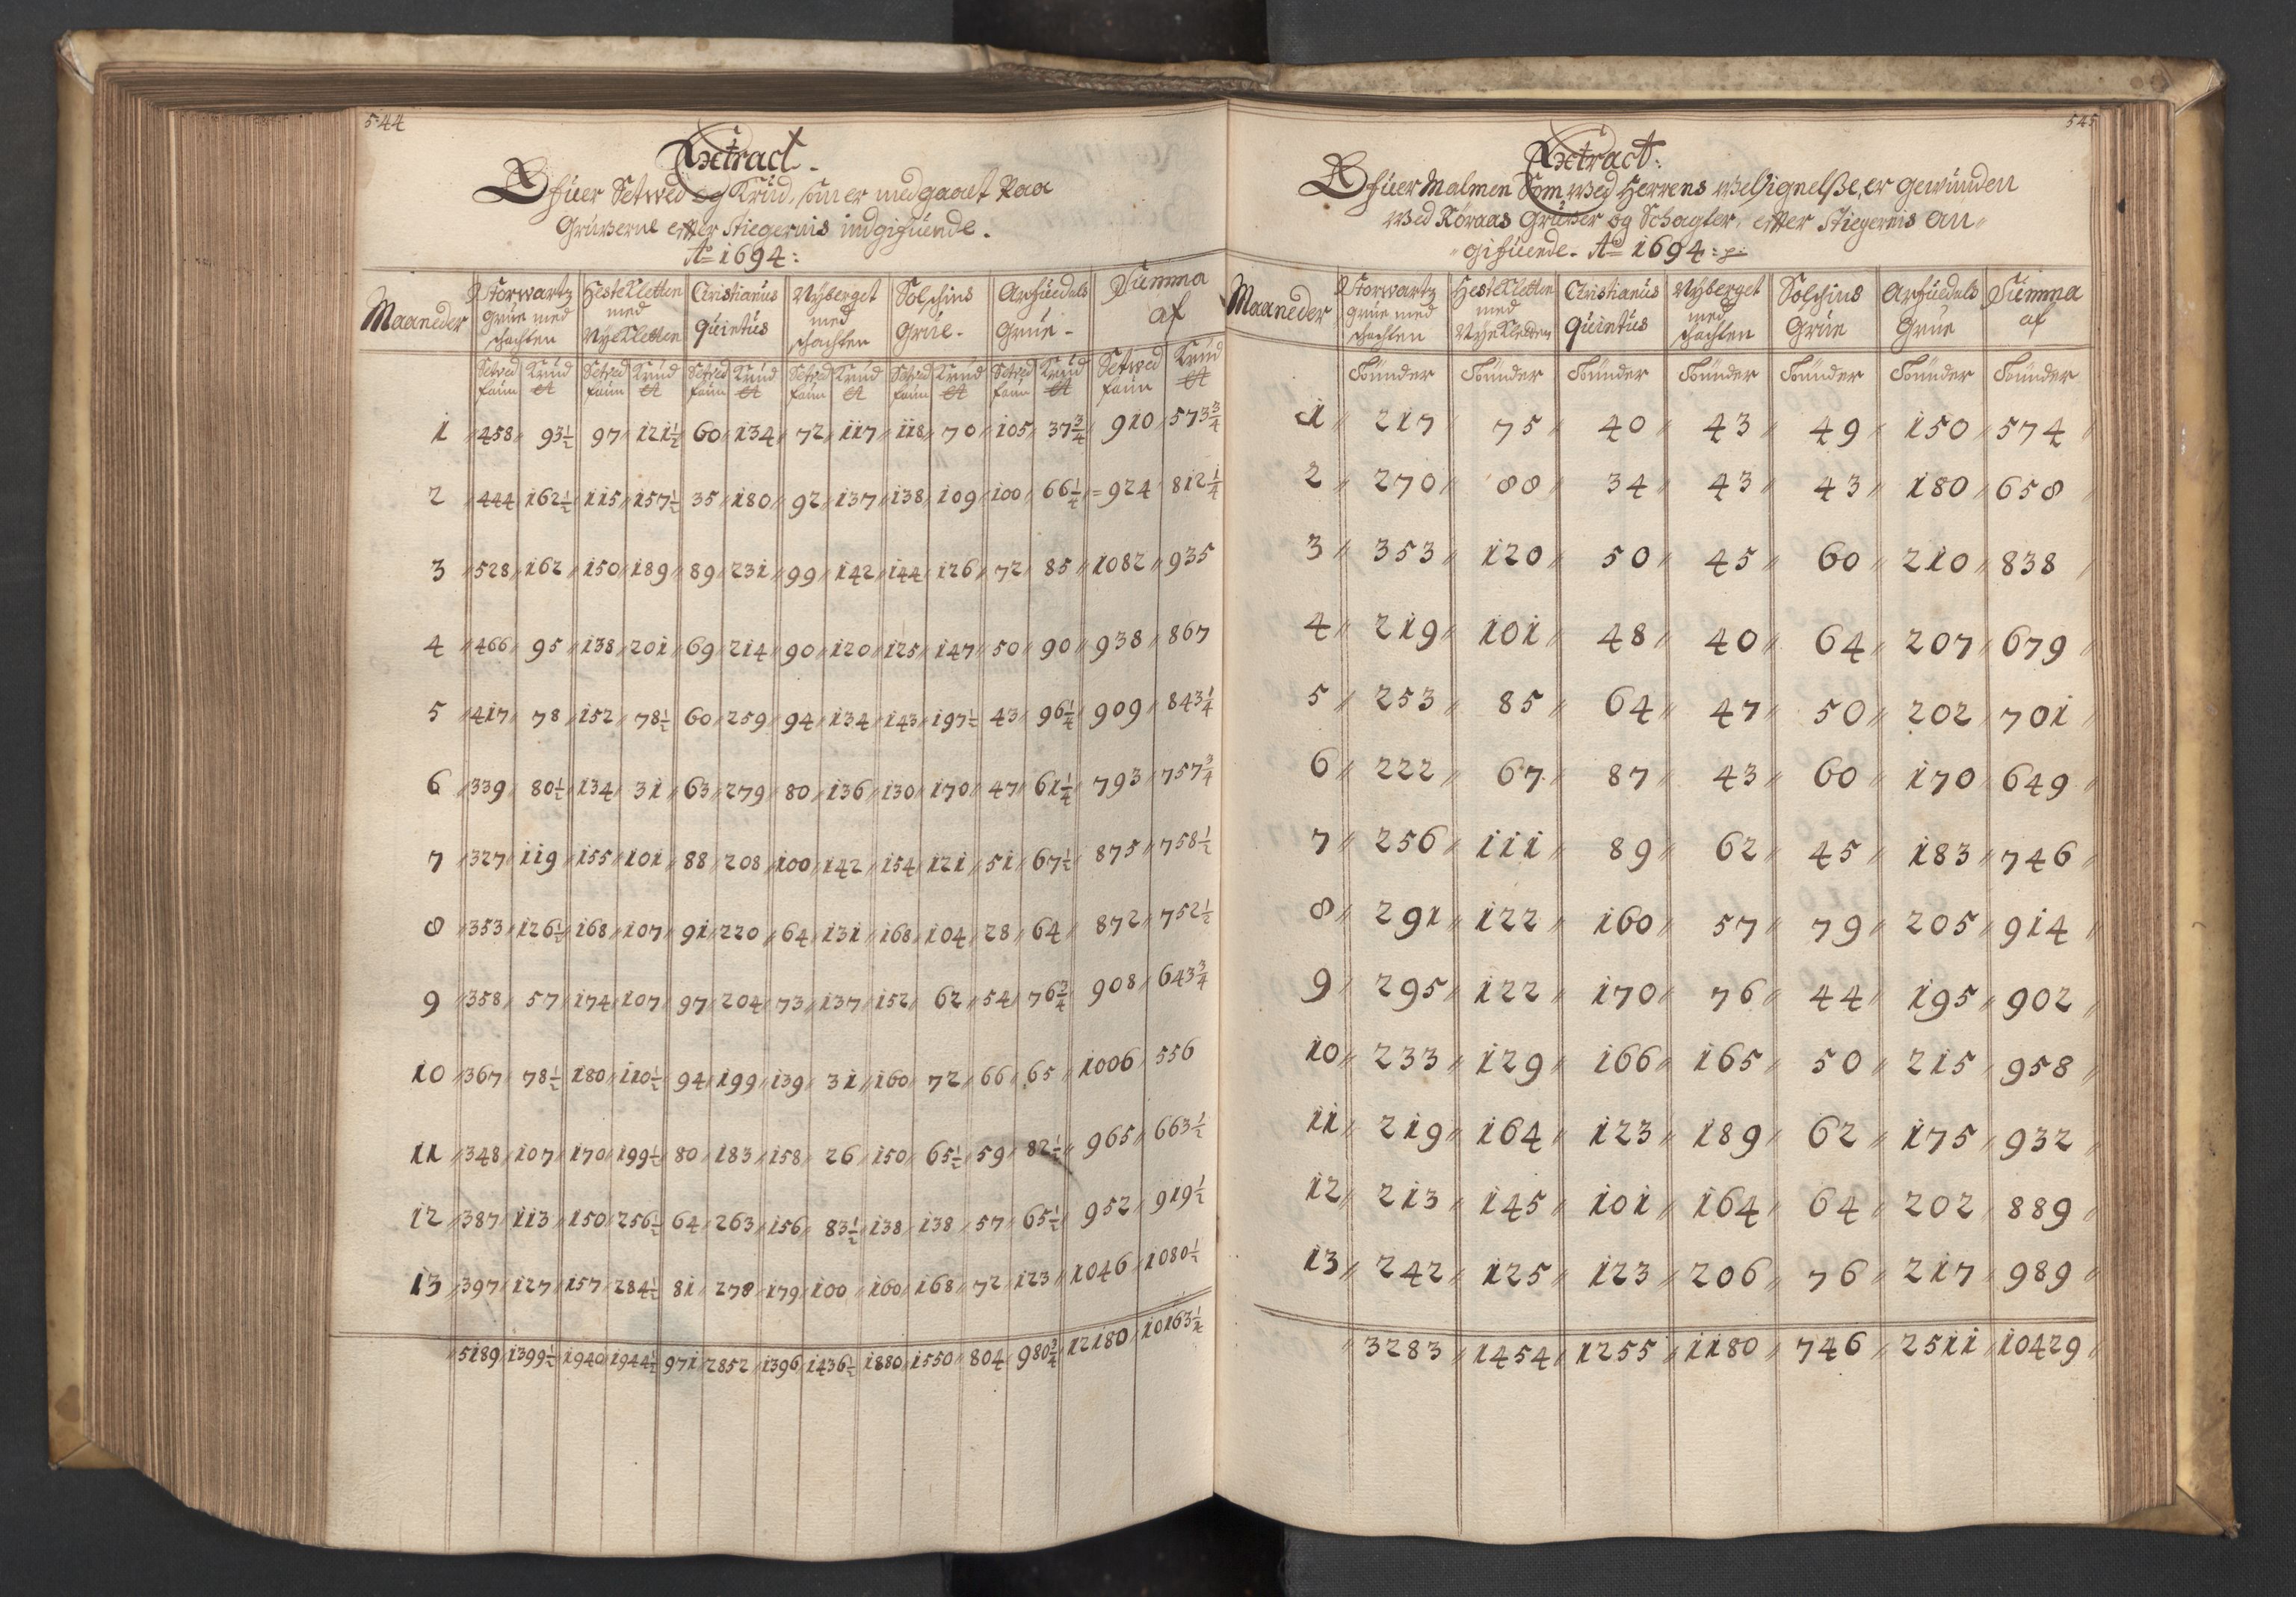 544
Extract.
Offuer Setwed og Krud, som er medgaaet Paa
Gruberne effter Stiegernis indgifuende.
Ao 1694:
Maaneder | Storwartz grue med schachten | HesteKletten med NyeKletten | Christianus Quintus | Nyberget med schachten | Solschins Grue. | Arfuedals Grue. | Summa af
Setwed faun | Krud ℔ | Setwed faun | Krud ℔ | Setwed faun | Krud ℔ | Setwed faun | Krud ℔ | Setwed faun | Krud ℔ | Setwed faun | Krud ℔ | Setwed faun | Krud ℔
1 | 458 | 93½ | 97 | 121½ | 60 | 134 | 72 | 117 | 118 | 70 | 105 | 37¾ | 910 | 573¾
2 | 444 | 162½ | 115 | 157½ | 35 | 180 | 92 | 137 | 138 | 109 | 100 | 66¼ | 924 | 812¼
3 | 528 | 162 | 150 | 189 | 89 | 231 | 99 | 142 | 144 | 126 | 72 | 85 | 1082 | 935
4 | 466 | 95 | 138 | 201 | 69 | 214 | 90 | 120 | 125 | 147 | 50 | 90 | 938 | 867
5 | 417 | 78 | 152 | 78½ | 60 | 259 | 94 | 134 | 143 | 197½ | 43 | 96¼ | 909 | 843¼
6 | 339 | 80½ | 134 | 31 | 63 | 279 | 80 | 136 | 130 | 170 | 47 | 61¼ | 793 | 757¾
7 | 327 | 119 | 155 | 101 | 88 | 208 | 100 | 142 | 154 | 121 | 51 | 67½ | 875 | 758½
8 | 353 | 126½ | 168 | 107 | 91 | 220 | 64 | 131 | 168 | 104 | 28 | 64 | 872 | 752½
9 | 358 | 57 | 174 | 107 | 97 | 204 | 73 | 137 | 152 | 62 | 54 | 76¾ | 908 | 643¾
10 | 367 | 78½ | 180 | 110½ | 94 | 199 | 139 | 31 | 160 | 72 | 66 | 65 | 1006 | 556
11 | 348 | 107 | 170 | 199½ | 80 | 183 | 158 | 26 | 150 | 65½ | 59 | 82½ | 965 | 663½
12 | 387 | 113 | 150 | 256½ | 64 | 263 | 156 | 83½ | 138 | 138 | 57 | 65½ | 952 | 919½
13 | 397 | 127 | 157 | 284½ | 81 | 278 | 179 | 100 | 160 | 168 | 72 | 123 | 1046 | 1080½
5189 | 1399½ | 1940 | 1944½ | 971 | 2852 | 1396 | 1436½ | 1880 | 1550 | 804 | 980¾ | 12180 | 10163¼
545
Extract:
Offuer Malmen Som, wed Herrens welsignelsze, er gewunden
wed Röraas Gruber og Schagter, effter Stiegernis an
gifuende. Ao 1694:
Maaneder | Storwartz grue med schachten | HesteKletten med NyeKletten | Christianus Quintus | Nyberget med schachten | Solschins Grue | Arfuedals Grue | Summa af
Tünder | Tünder | Tünder | Tünder | Tünder | Tünder | Tünder
1 | 217 | 75 | 40 | 43 | 49 | 150 | 574
2 | 270 | 88 | 34 | 43 | 43 | 180 | 658
3 | 353 | 120 | 50 | 45 | 60 | 210 | 838
4 | 219 | 101 | 48 | 40 | 64 | 207 | 679
5 | 253 | 85 | 64 | 47 | 50 | 202 | 701
6 | 222 | 67 | 87 | 43 | 60 | 170 | 649
7 | 256 | 111 | 89 | 62 | 45 | 183 | 746
8 | 291 | 122 | 160 | 57 | 79 | 205 | 914
9 | 295 | 122 | 170 | 76 | 44 | 195 | 902
10 | 233 | 129 | 166 | 165 | 50 | 215 | 958
11 | 219 | 164 | 123 | 189 | 62 | 175 | 932
12 | 213 | 145 | 101 | 164 | 64 | 202 | 889
13 | 242 | 125 | 123 | 206 | 76 | 217 | 989
3283 | 1454 | 1255 | 1180 | 746 | 2511 | 10429